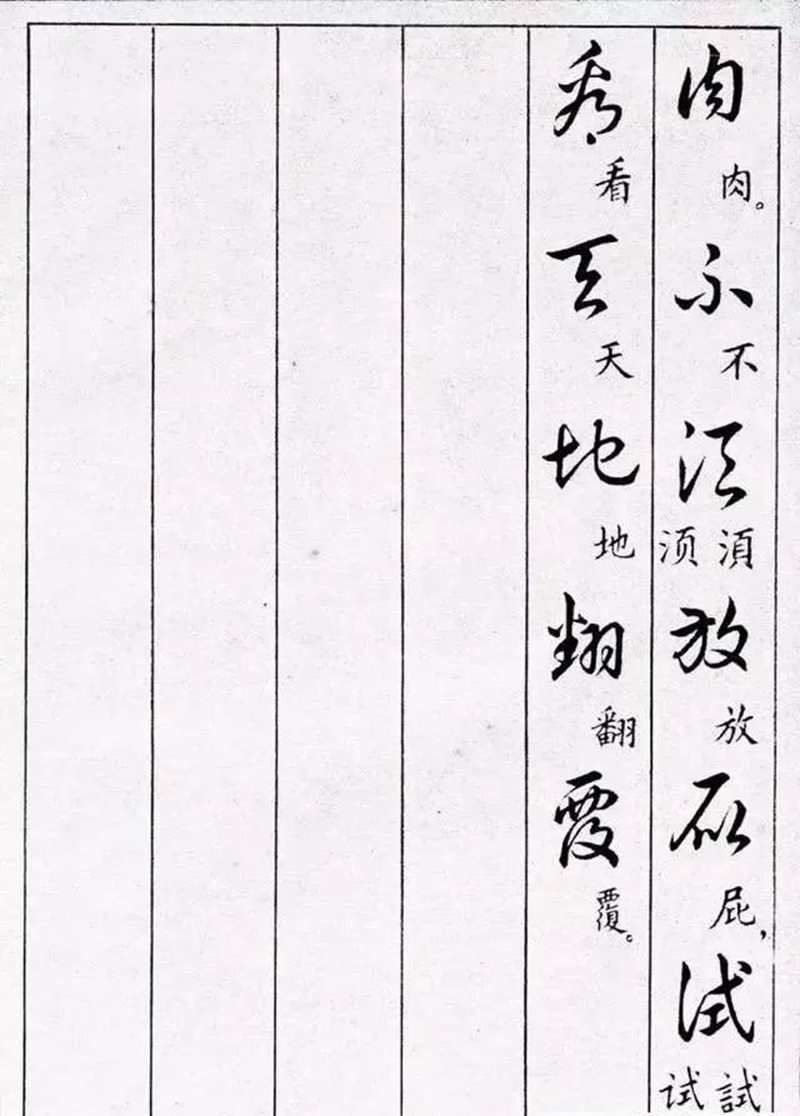 肉 肉。 不 不 须 須 须 放 放 屁 屁， 试 試 试
看 看 天 天 地 地 翻 翻 覆 覆。